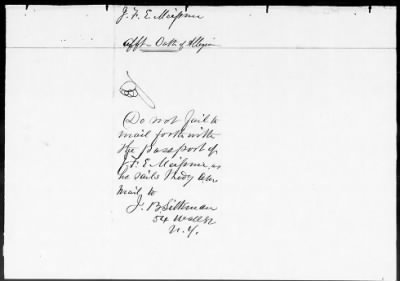 J. F. E. Meissner
afft - Oath of Allegia
Do not fail to
mail forthwith
the passport of
J. F. E. Meissner, as
he sails
mail to
J. B.
54 Wall St
N. Y.